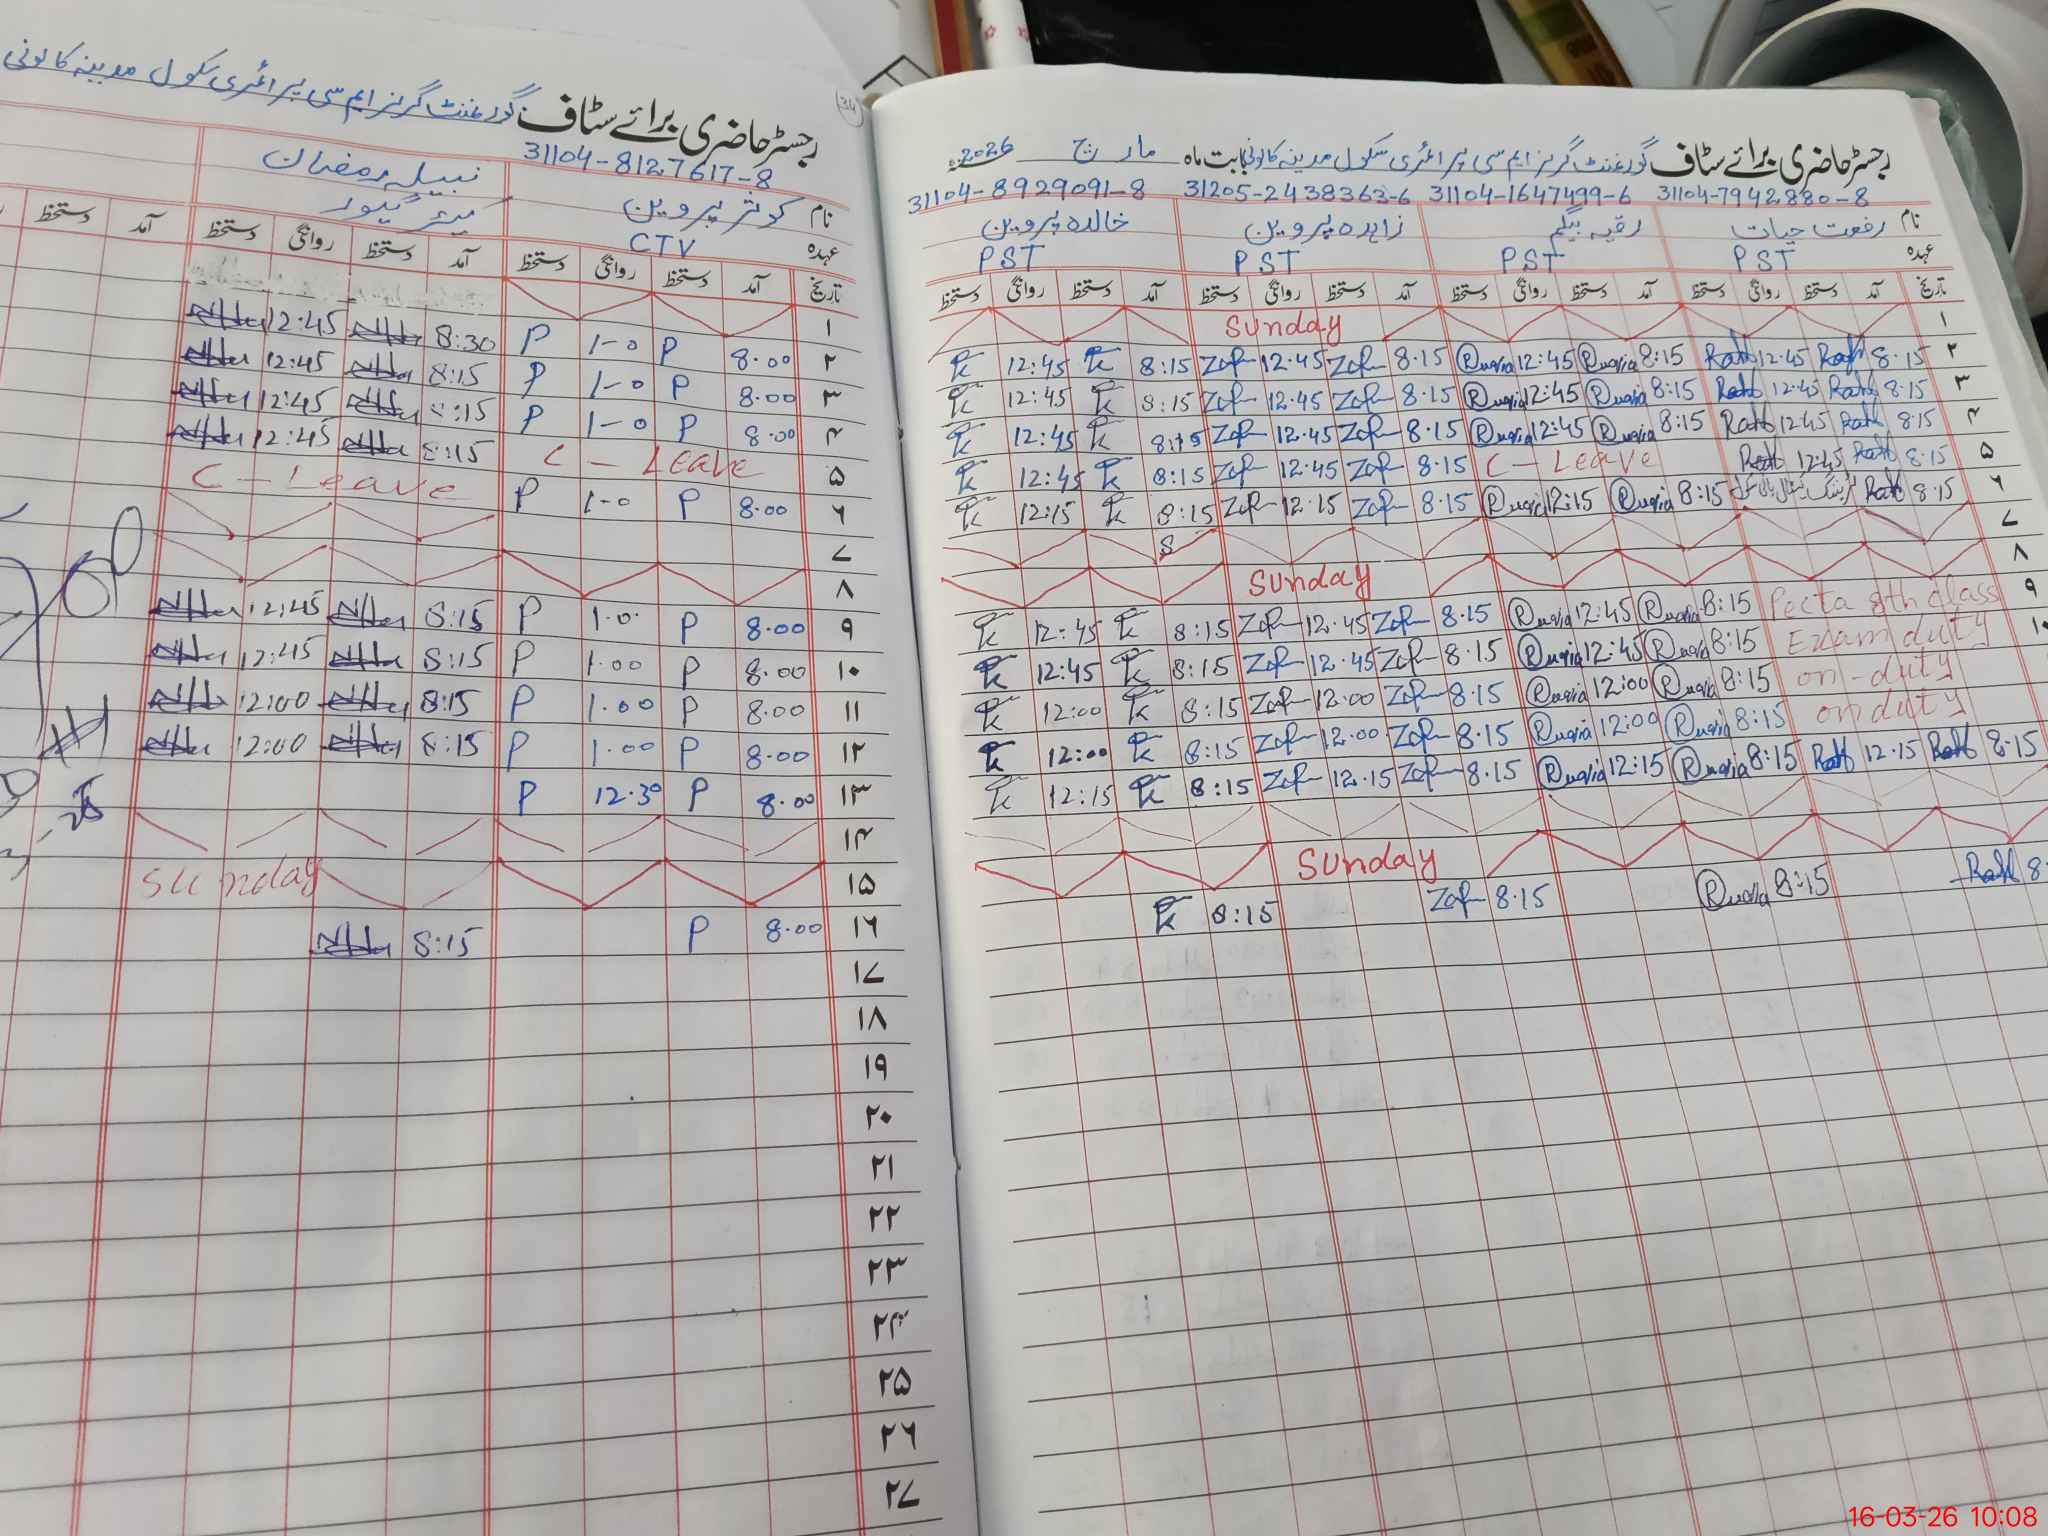 رجسٹر حاضری برائے سٹاف گورنمنٹ گرلز ایم سی پرائمری سکول مدینہ کالونی بابت ماہ مارچ 2026ء
31104-7942880-8 31104-1647499-6 31205-2438363-6 31104-8929091-8
نام رفعت حیات رقیہ بیگم زاہدہ پروین خالدہ پروین
عہدہ PST PST PST PST
تاریخ آمد دستخط روانگی دستخط آمد دستخط روانگی دستخط آمد دستخط روانگی دستخط آمد دستخط روانگی دستخط
۱ Sunday
۲ 8.15 Rafat 12.45 Rafat 8:15 Ruqia 12:45 Ruqia 8.15 12.45 8:15 12:45
۳ 8.15 Rafat 12.45 Rafat 8:15 Ruqia 12:45 Ruqia 8.15 12.45 8:15 12:45
۴ 8.15 Rafat 12.45 Rafat 8:15 Ruqia 12:45 Ruqia 8.15 12.45 8:15 12:45
۵ 8.15 Rafat 12.45 Rafat C - Leave 8.15 12.45 8:15 12:45
۶ 8.15 Rafat 8:15 Ruqia 12:15 Ruqia 8.15 12.15 8:15 12:15
۷ 8
۸ Sunday
۹ Pecta 8th class 8:15 Ruqia 12:45 Ruqia 8.15 12.45 8:15 12:45
۱۰ Exam duty 8:15 Ruqia 12:45 Ruqia 8.15 12.45 8:15 12:45
on-duty 8:15 Ruqia 12:00 Ruqia 8.15 12.00 8:15 12:00
on duty 8:15 Ruqia 12:00 Ruqia 8.15 12.00 8:15 12:00
8.15 Rafat 12.15 Rafat 8:15 Ruqia 12:15 Ruqia 8.15 12.15 8:15 12:15
Sunday
8 Rafat 8:15 Ruqia 8.15 8:15
34
رجسٹر حاضری برائے سٹاف گورنمنٹ گرلز ایم سی پرائمری سکول مدینہ کالونی
31104-8127617-8
نام کوثر پروین نبیلہ رمضان
عہدہ CTV کیئر گیور
تاریخ آمد دستخط روانگی دستخط آمد دستخط روانگی دستخط آمد دستخط
۱
۲ 8.00 P 1-0 P 8:30 12:45
۳ 8.00 P 1-0 P 8:15 12:45
۴ 8.00 P 1-0 P 8:15 12:45
۵ C - Leave 8:15 12:45
۶ 8.00 P 1-0 P C - Leave
۷
۸
۹ 8.00 P 1.0 P 8:15 12:45
۱۰ 8.00 P 1.00 P 8:15 12:45
۱۱ 8.00 P 1.00 P 8:15 12:00
۱۲ 8.00 P 1.00 P 8:15 12:00
۱۳ 8.00 P 12.30 P
۱۴
۱۵ Sunday
۱۶ 8.00 P 8:15
۱۷
۱۸
۱۹
۲۰
۲۱
۲۲
۲۳
۲۴
۲۵
۲۶
۲۷
16-03-26 10:08